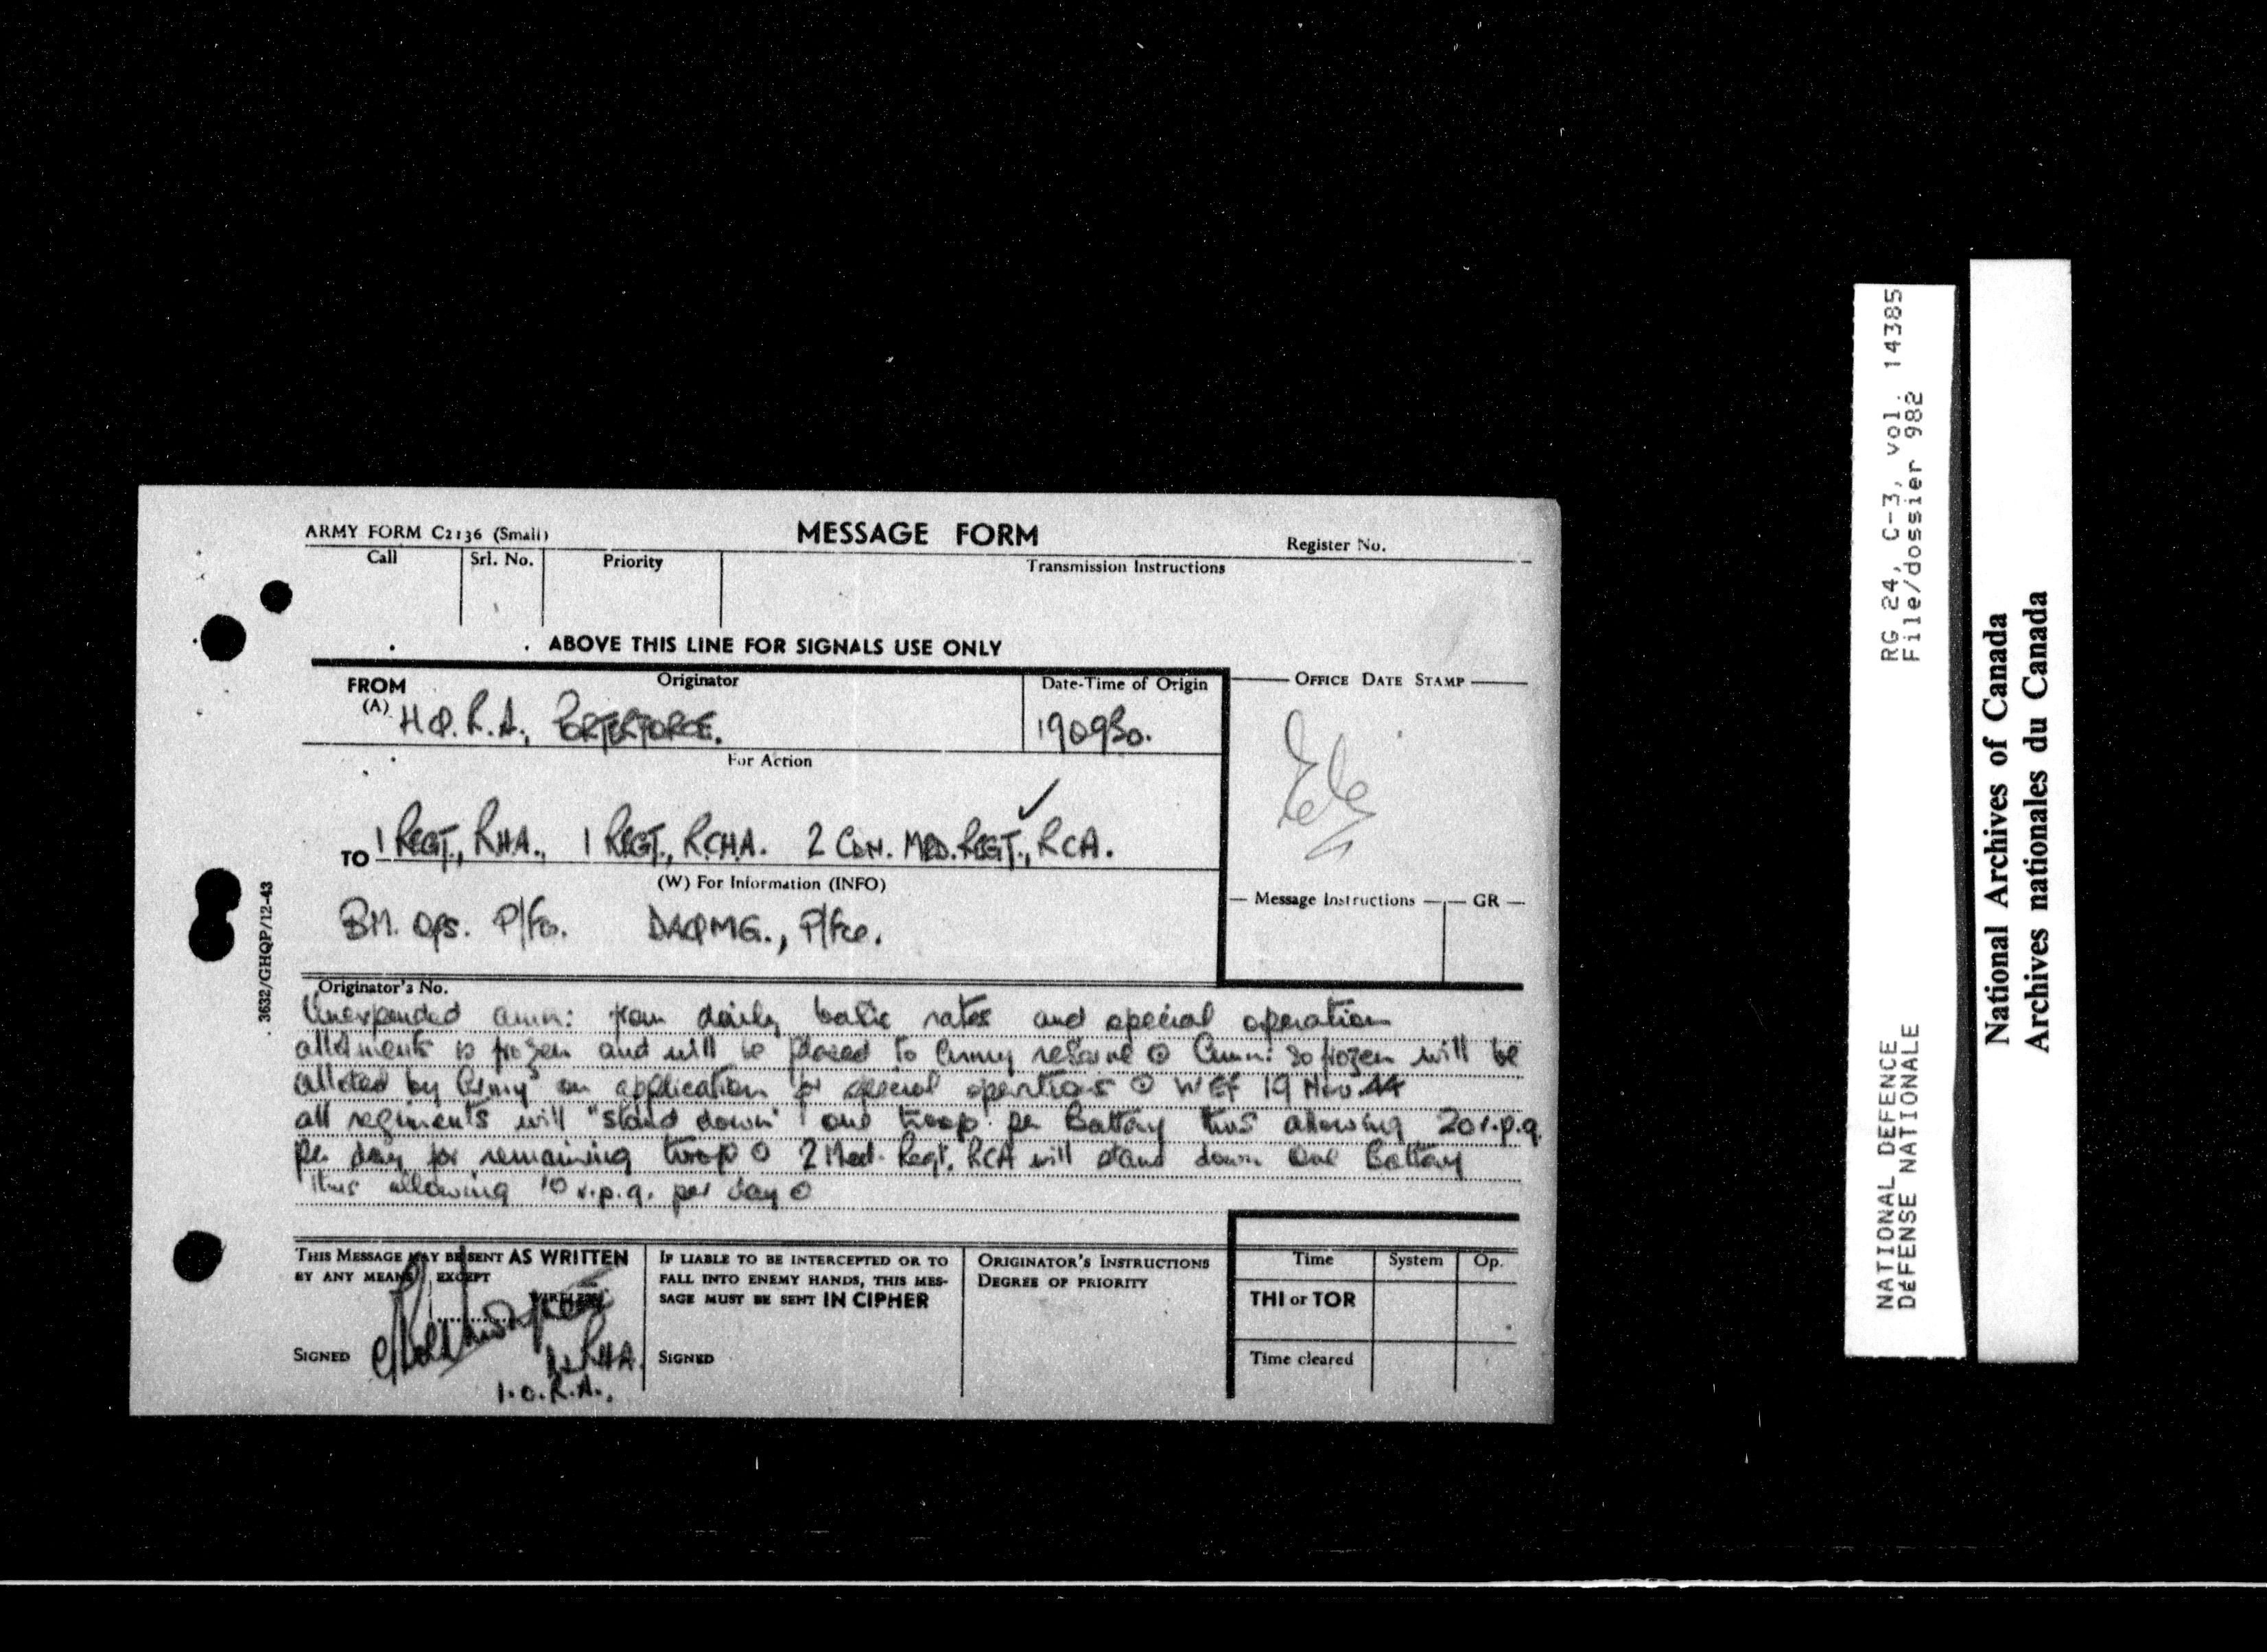 ARMY FORM C2136 (Small)
MESSAGE FORM
Register No.
Call
Srl. No.
Priority
Transmission Instructions
ABOVE THIS LINE FOR SIGNALS USE ONLY
FROM
(A)
Originator
Date-Time of Origin
OFFICE DATE STAMP
H.Q. R.A., PORTERFORCE.
190930.
For Action
TO 1 REGT., RHA., 1 REGT., RCHA. 2 CDN. MED. REGT., RCA.
(W) For Information (INFO)
Message Instructions
GR
BM. Ops. P/Fce. DAQMG., P/Fce.
3632/GHQP/12-43
Originator's No.
Unexpended amn: from daily basic rates and special operation
allotments is frozen and will be placed to Army reserve ⊙ Amn: so frozen will be
alloted by Army on application for special operations ⊙ WEF 19 Nov. 44
all regiments will "stand down" one troop per Battery thus allowing 20 r.p.g.
per day for remaining troop ⊙ 2 Med. Regt., RCA will stand down one Battery
thus allowing 10 r.p.g. per day ⊙
THIS MESSAGE MAY BE SENT AS WRITTEN
BY ANY MEANS EXCEPT
WIRELESS
SIGNED
RHA.
I.O.R.A.,
IF LIABLE TO BE INTERCEPTED OR TO
FALL INTO ENEMY HANDS, THIS MES-
SAGE MUST BE SENT IN CIPHER
SIGNED
ORIGINATOR'S INSTRUCTIONS
DEGREE OF PRIORITY
Time
System
Op.
THI or TOR
Time cleared
NATIONAL DEFENCE RG 24, C-3, vol. 14385
DéFENSE NATIONALE File/dossier 982
National Archives of Canada
Archives nationales du Canada